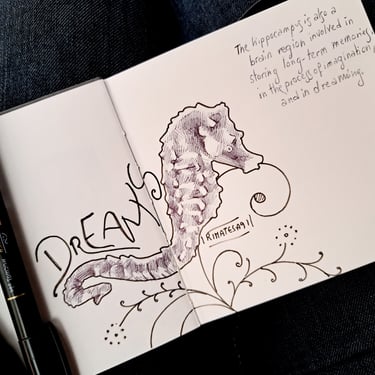 The hippocampus is also a
brain region involved in
storing long-term memories,
in the process of imagination
and in dreaming.
DREAMS